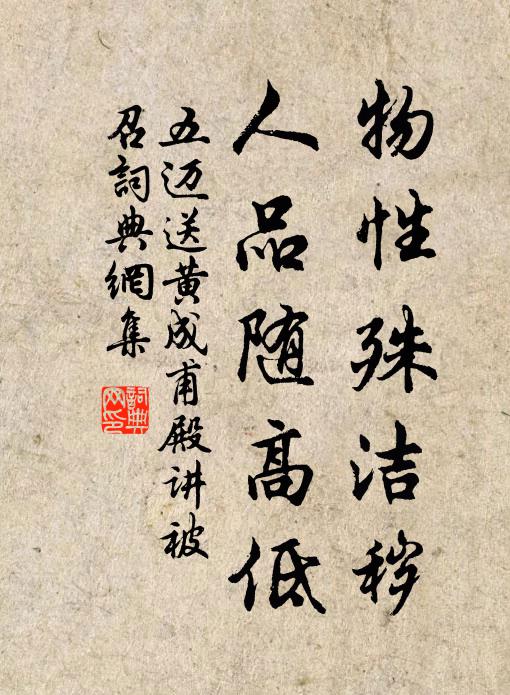 物性殊洁秽
人品随高低
五迈送黄成甫殿讲被
召詞典網集
詞典
网印